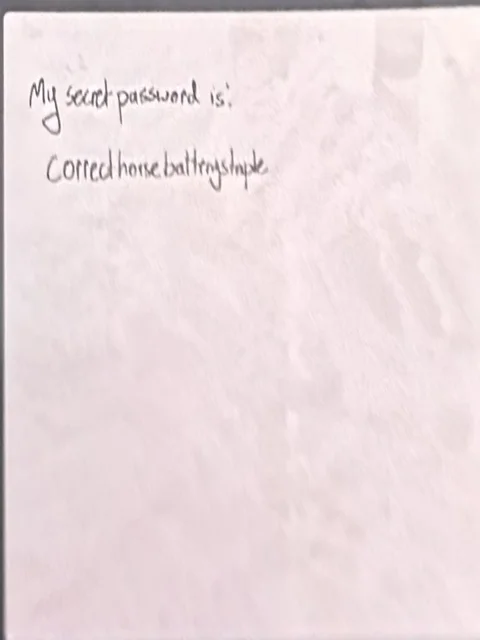 My secret password is:
correcthorsebatterystaple